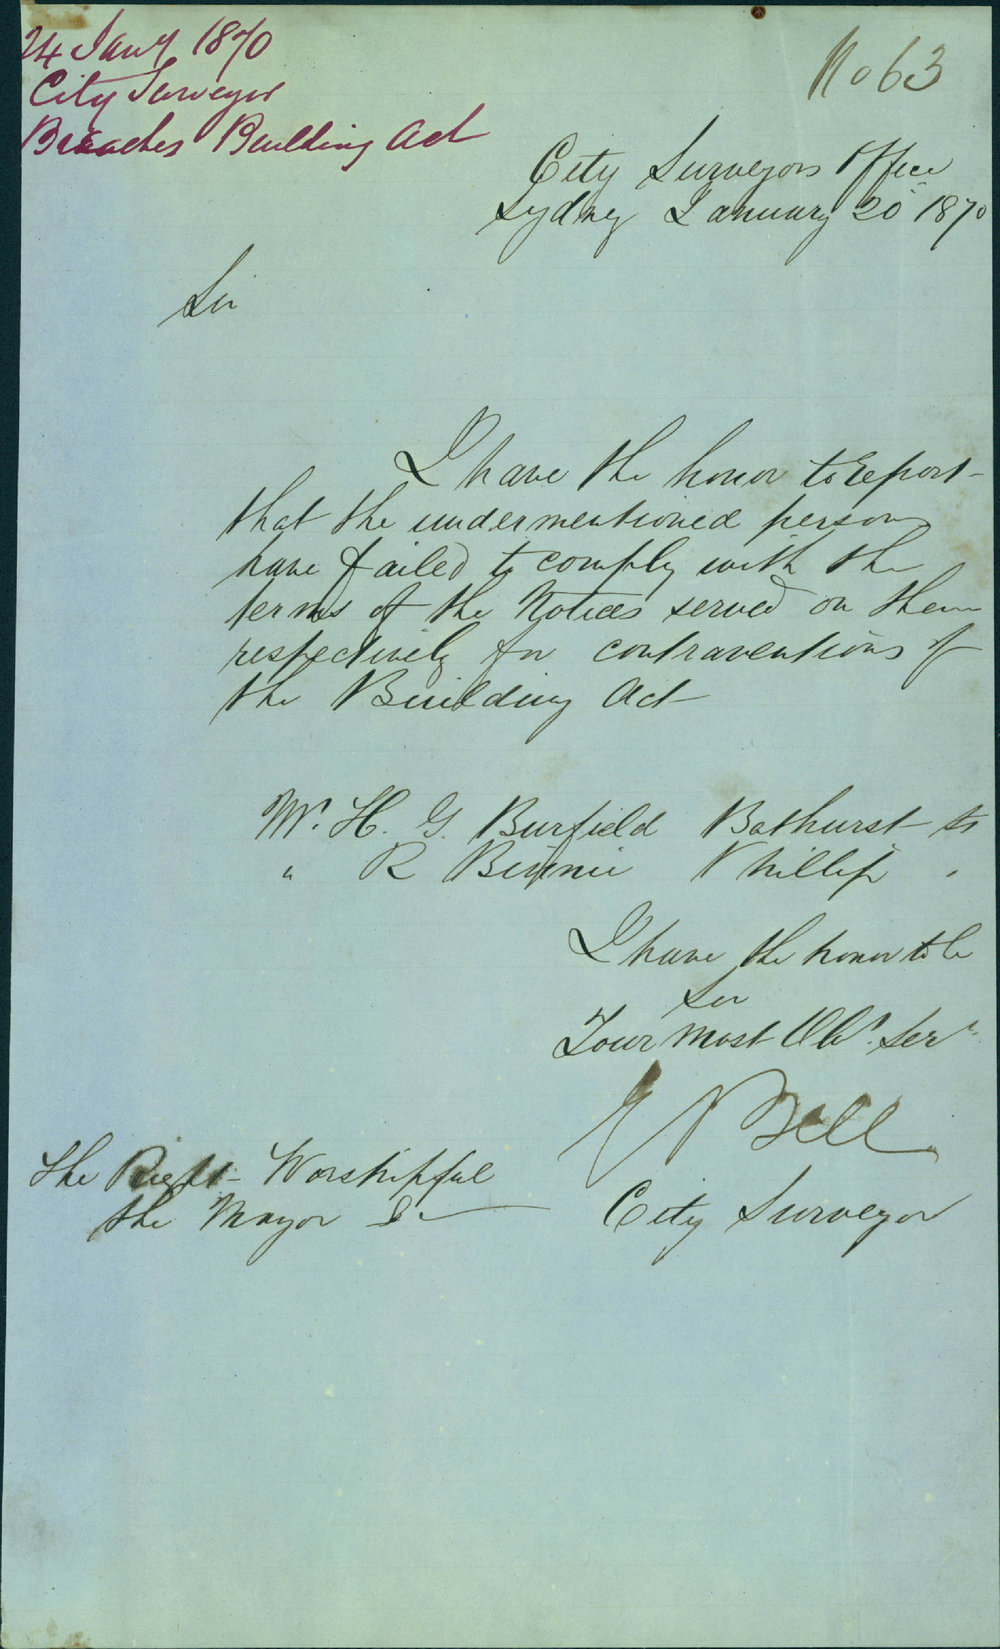 24 Jany 1870
City Surveyor
Breaches Building Act
No 63
City Surveyors Office
Sydney January 20 1870
Sir
I have the honor to report
that the undermentioned persons
have failed to comply with the
terms of the Notices served on them
respectively for contraventions of
the Building Act
Mr. H. G. Burfield Bathurst St
" R Binnie Phillip "
I have the honor to be
Sir
Your most Obt. Servt.
E Bell
City Surveyor
The Right Worshipful
the Mayor